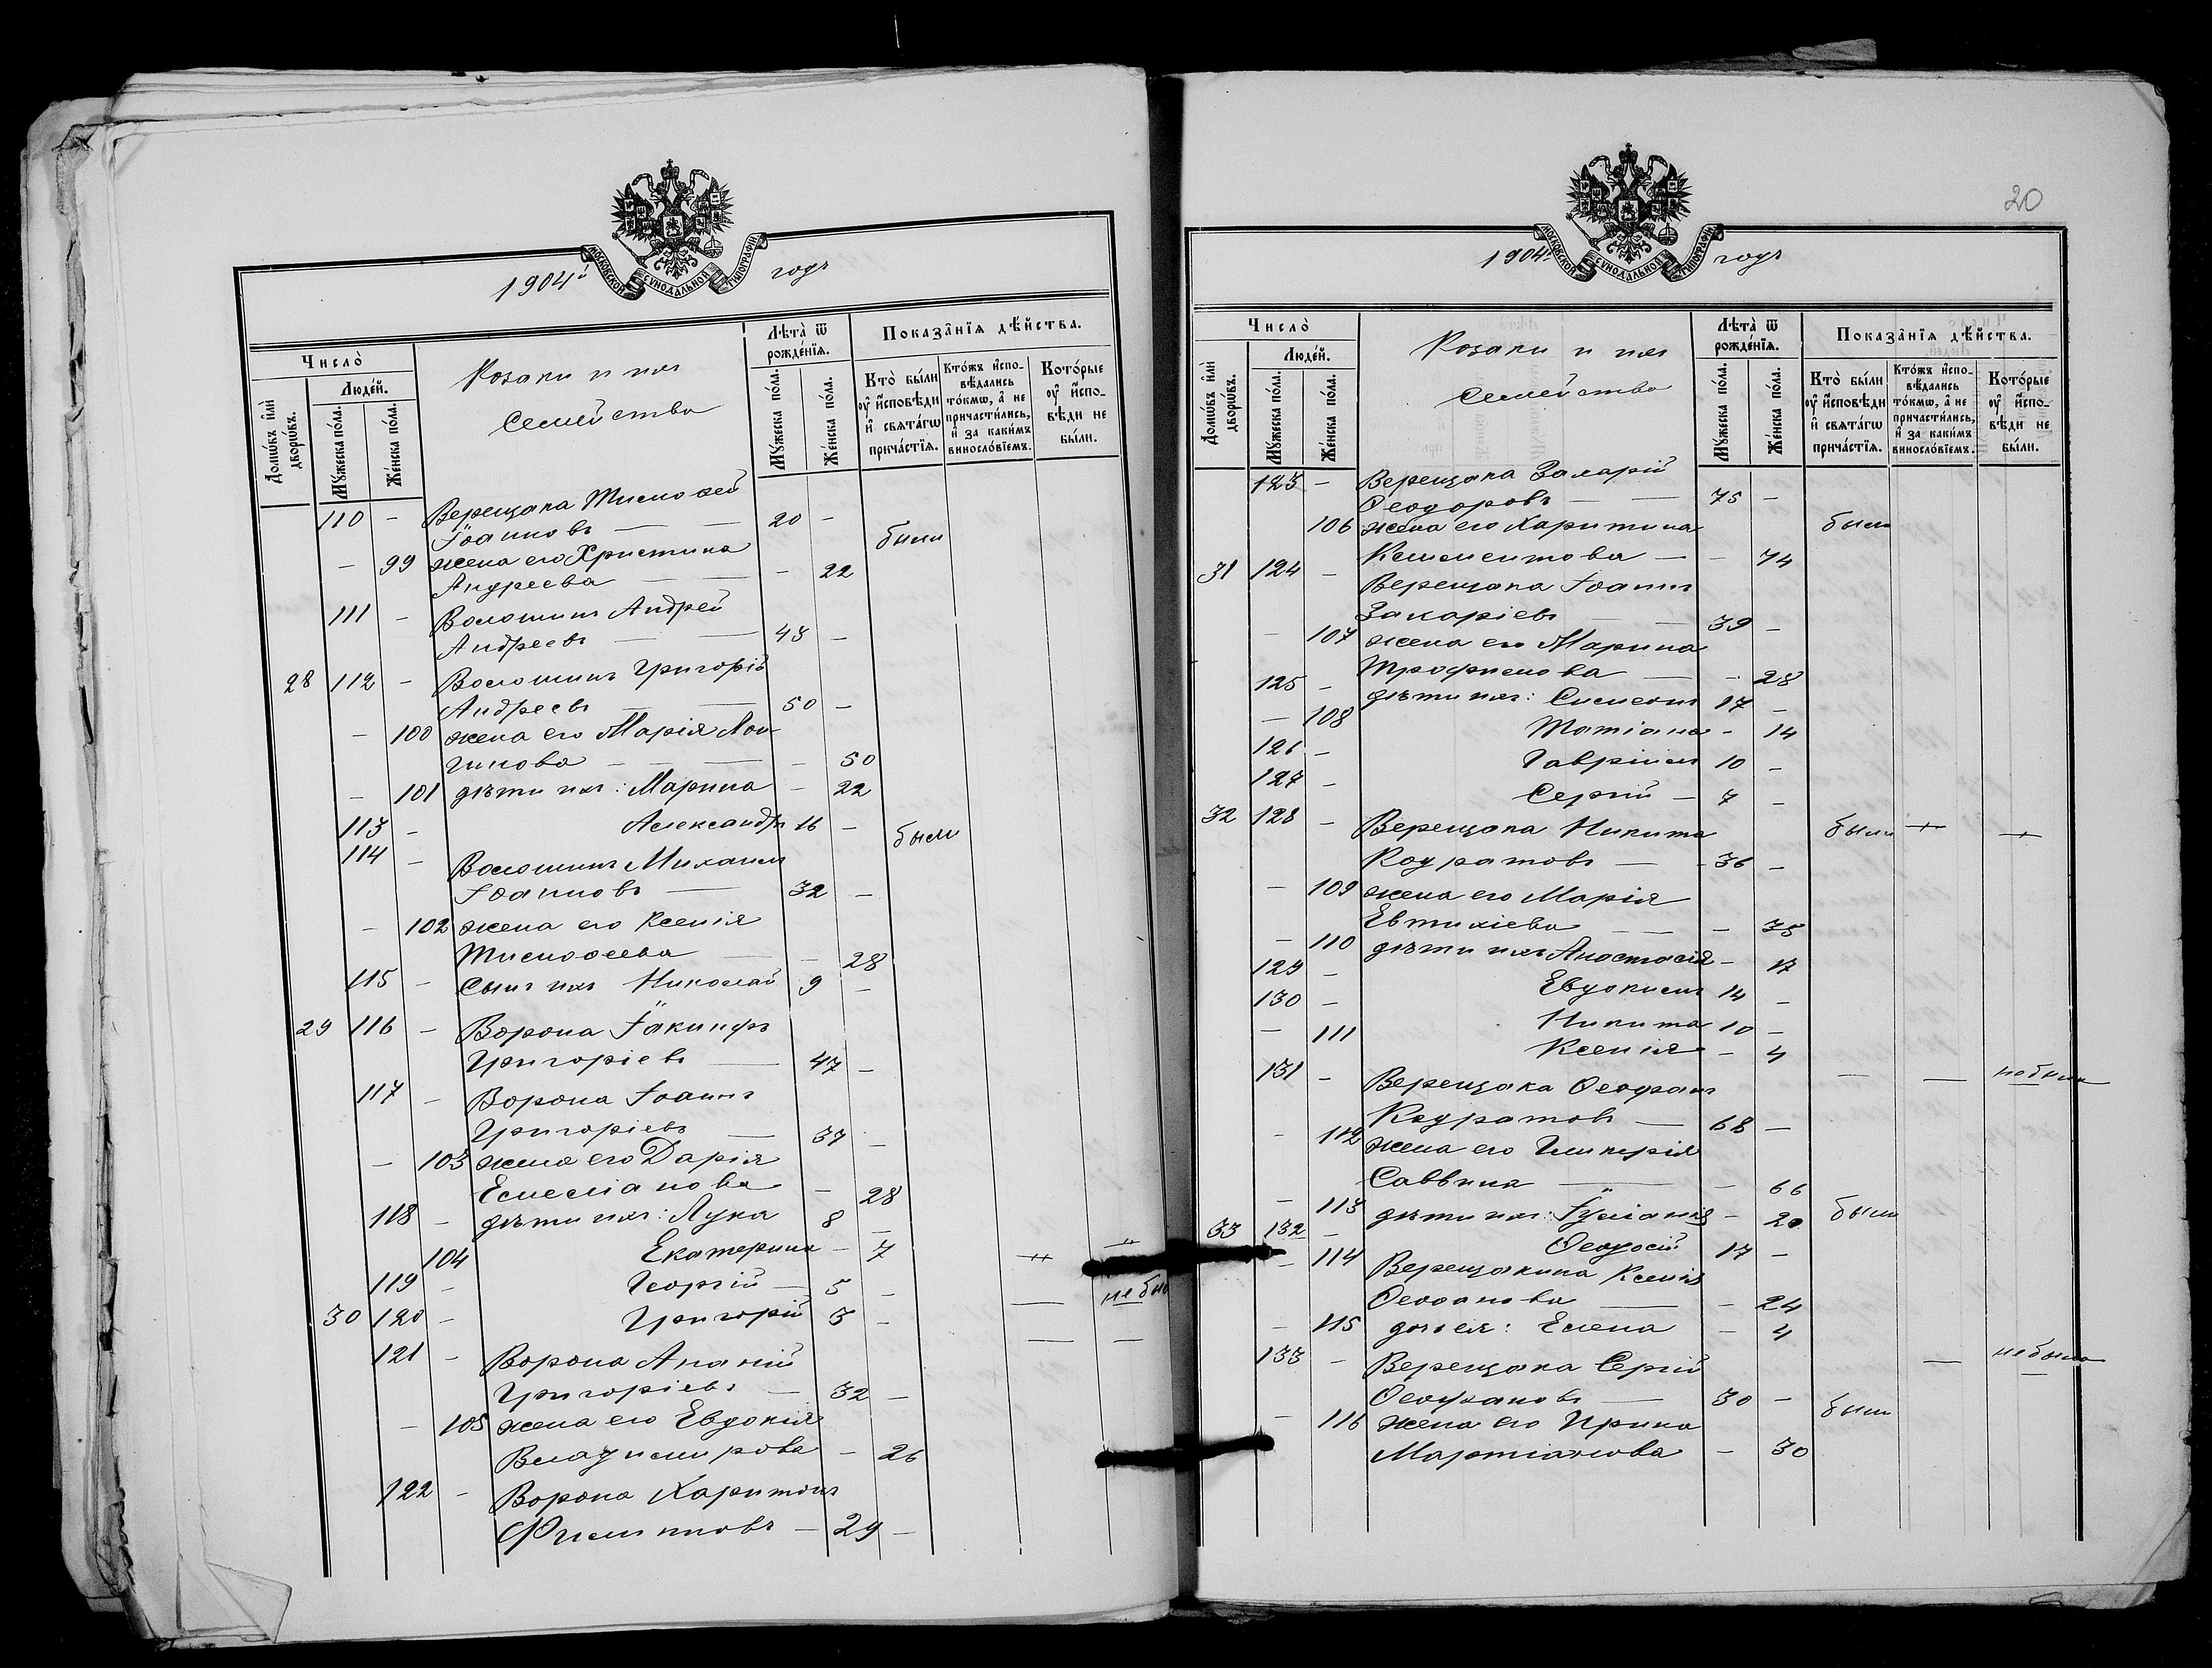 1904й годъ
МОСКОВСКОЙ СѴНОДАЛЬНОЙ ТИПОГРАФІИ
Число̀
Людей.
Домѡвъ и҆лѝ дворѡвъ.
Мꙋжеска пола.
Женска пола.
Козаки и ихъ
семейства
Лѣта̀ ѿ рожде́нїѧ.
Мꙋжеска пола.
Женска пола.
Показа̑нїѧ дѣ́йства.
Кто̀ бы́ли оу҆ и҆сповѣди и҆ свѧта́гѡ прича́стїѧ.
Кто́жъ и҆спо-вѣдались то́кмѡ, а҆ не причасти́лись, и҆ за каки́мъ виносло́вїемъ.
Кото́рые оу҆ и҆спо-вѣди не бы́ли.
110 - Верещака Тимофей
Іоанновъ — — 20 -
- 99 жена его Христина были
Андреева — — - 22
111 - Волошинъ Андрей
Андреевъ — — 43 -
28 112 - Волошинъ Григорій
Андреевъ — — 50 -
- 100 жена его Марія Лон-
гинова — — - 50
- 101 дѣти ихъ: Марина - 22
113 - Александръ 16 - были
114 - Волошинъ Михаилъ
Іоанновъ — 32 -
- 102 жена его Ксенія
Тимофеева — - 28
115 - Сынъ ихъ Николай 9 -
29 116 - Ворона Іакинфъ
Григоріевъ — 47 -
117 - Ворона Іоаннъ
Григоріевъ — 37 -
- 103 жена его Дарія
Емеліанова - 28
118 - дѣти ихъ: Лука 8 -
104 Екатерина - 7
119 - Георгій — 5 -
30 120 - Григорій 3 - — не бы
121 - Ворона Ананій — —
Григоріевъ — 32 -
- 105 жена его Евдокія
Владимирова - 26
122 - Ворона Харитонъ
Филиповъ — 29 -
20
1904й годъ
МОСКОВСКОЙ СѴНОДАЛЬНОЙ ТИПОГРАФІИ
Число̀
Людей.
Домѡвъ и҆лѝ дворѡвъ.
Мꙋжеска пола.
Женска пола.
Козаки и ихъ
семейства
Лѣта̀ ѿ рожде́нїѧ.
Мꙋжеска пола.
Женска пола.
Показа̑нїѧ дѣ́йства.
Кто̀ бы́ли оу҆ и҆сповѣди и҆ свѧта́гѡ прича́стїѧ.
Кто́жъ и҆спо-вѣдались то́кмѡ, а҆ не причасти́лись, и҆ за каки́мъ виносло́вїемъ.
Кото́рые оу҆ и҆спо-вѣди не бы́ли.
123 - Верещака Захарій
Ѳеодоровъ — — 75 -
106 жена его Харитина были
Климентова — - 74
31 124 - Верещака Іоаннъ
Захаріевъ — 39 -
- 107 жена его Марина
Трофимова — - 28
125 - дѣти ихъ: Симеонъ 17 -
- 108 Татіана - 14
126 - Гавріилъ 10 -
127 - Сергій — 7 -
32 128 - Верещака Никита были — —
Кодратовъ — 36 -
- 109 жена его Марія
Евтихіева — - 35
- 110 дѣти ихъ Анастасія - 17
129 - Евдокимъ 14 -
130 - Никита 10 -
- 111 Ксенія - 4
131 - Верещака Ѳеофанъ — — небыли
Кодратовъ — 68 -
- 112 жена его Гликерія
Саввина — - 66
- 113 дѣти ихъ: Іуліанія - 20 были
33 132 - Ѳеодосій 17 -
- 114 Верещакина Ксенія
Ѳеофанова — - 24
- 115 дочь ея: Елена - 4
133 - Верещака Сергій — небыли
Ѳеофановъ — 30 -
- 116 жена его Ирина были
Мартіанова - 30